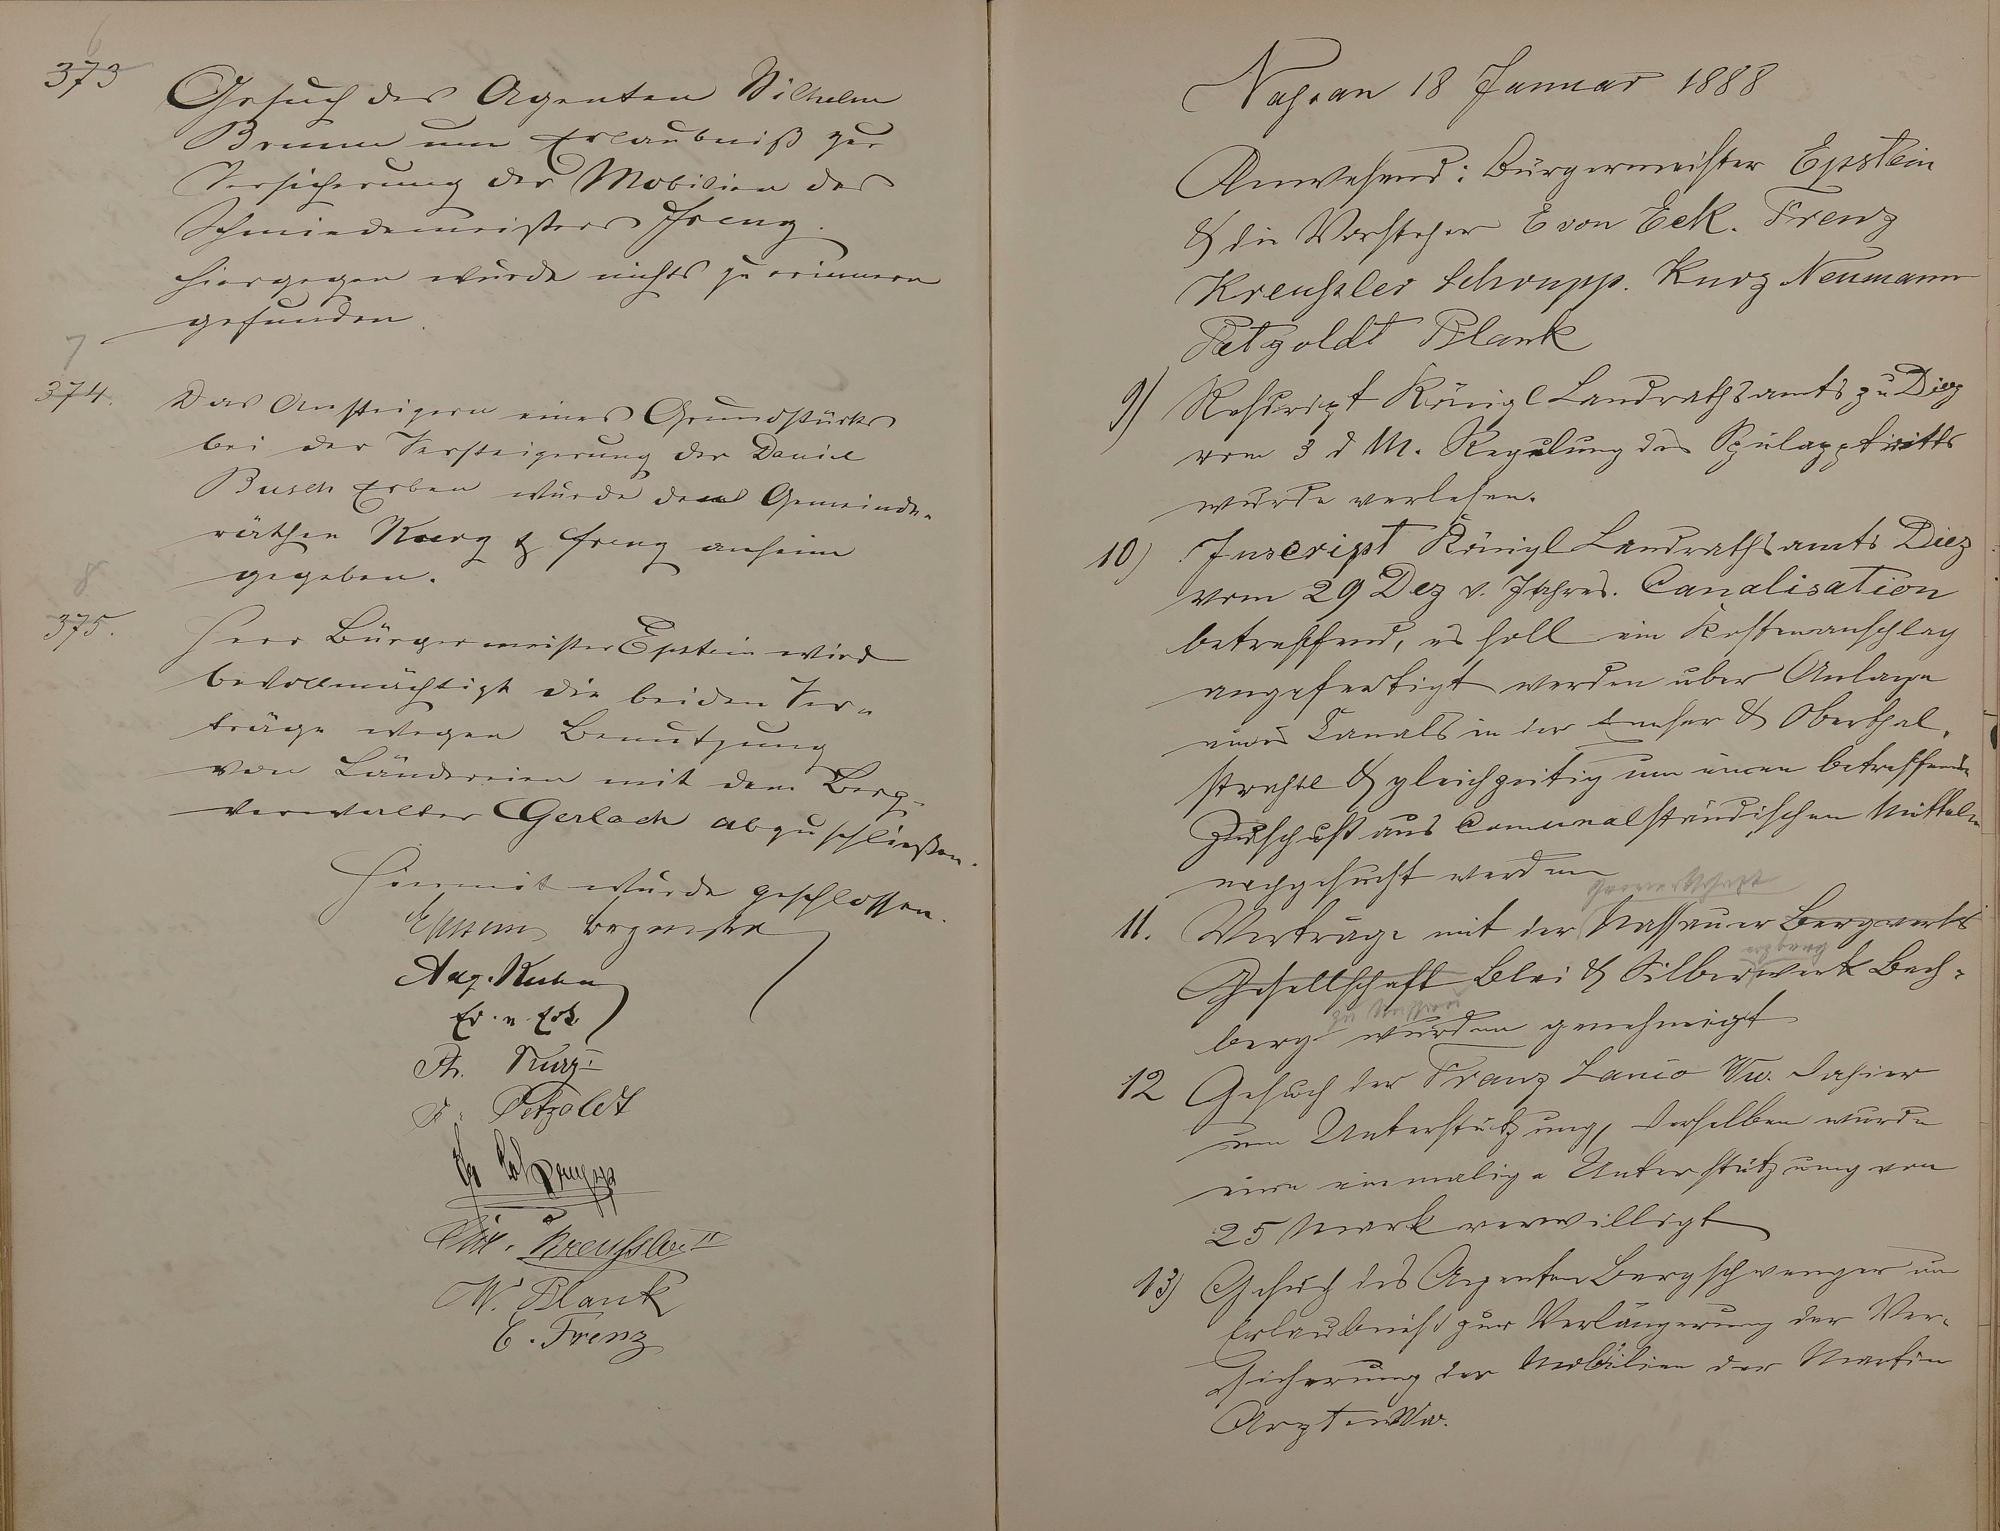 6
373
Gesuch des Agenten Wilhelm
Brumm um Erlaubniß zur
Versicherung der Mobilien des
Schmiedemeisters Frenz.
Hiergegen wurde nichts zu erinnern
gefunden.
7
374.
Das Ansteigern eines Grundstücks
bei der Versteigerung der Daniel
Busch Erben wurde den Gemeinde-
räthen Kurz & Frenz anheim
gegeben.
8
375.
Herr Bürgermeister Epstein wird
bevollmächtigt die beiden Ver-
träge wegen Benutzung
von Ländereien mit dem Berg-
verwalter Gerlach abzuschließen.
Hiermit wurde geschlossen.
Epstein Bürgermstr
Aug. Kuhn
Ed. v. Eck
Ph. Kurz
Petzoldt
Schrupp
Kreußler II
W. Blank
E. Frenz
Nassau 18 Januar 1888
Anwesend: Bürgermeister Epstein
& die Vorsteher E von Eck. Frenz
Kreußler Schrupp. Kurz Neumann
Petzoldt Blank
9) Rescript Königl Landrathsamts zu Diez
vom 3 d M. Regulung des
wurde verlesen.
10) Inscript Königl Landrathsamts Diez
vom 29 Dez v. Jahres. Canalisation
betreffend, es soll ein Kostenanschlag
angefertigt werden uber Anlage
eines Canals in der Emser & Oberthal-
straße & gleichzeitig um einen betreffenden
Zuschuß aus Comunalständischen Mitteln
nachgesucht werden
Gewerkschaft
11. Verträge mit der Nassauer Bergwerks
Gesellschaft Blei & Silberwerk Bach-
berg wurden genehmigt
12 Gesuch der Franz Wu. dahier
um Unterstützung, derselben wurde
eine einmalige Unterstützung von
25 Mark verwilligt
13) Gesuch des Agenten Bergschwenger um
Erlaubniß zur Verlängerung der Ver-
sicherung der Mobilien der Martin
Arzt Ww.